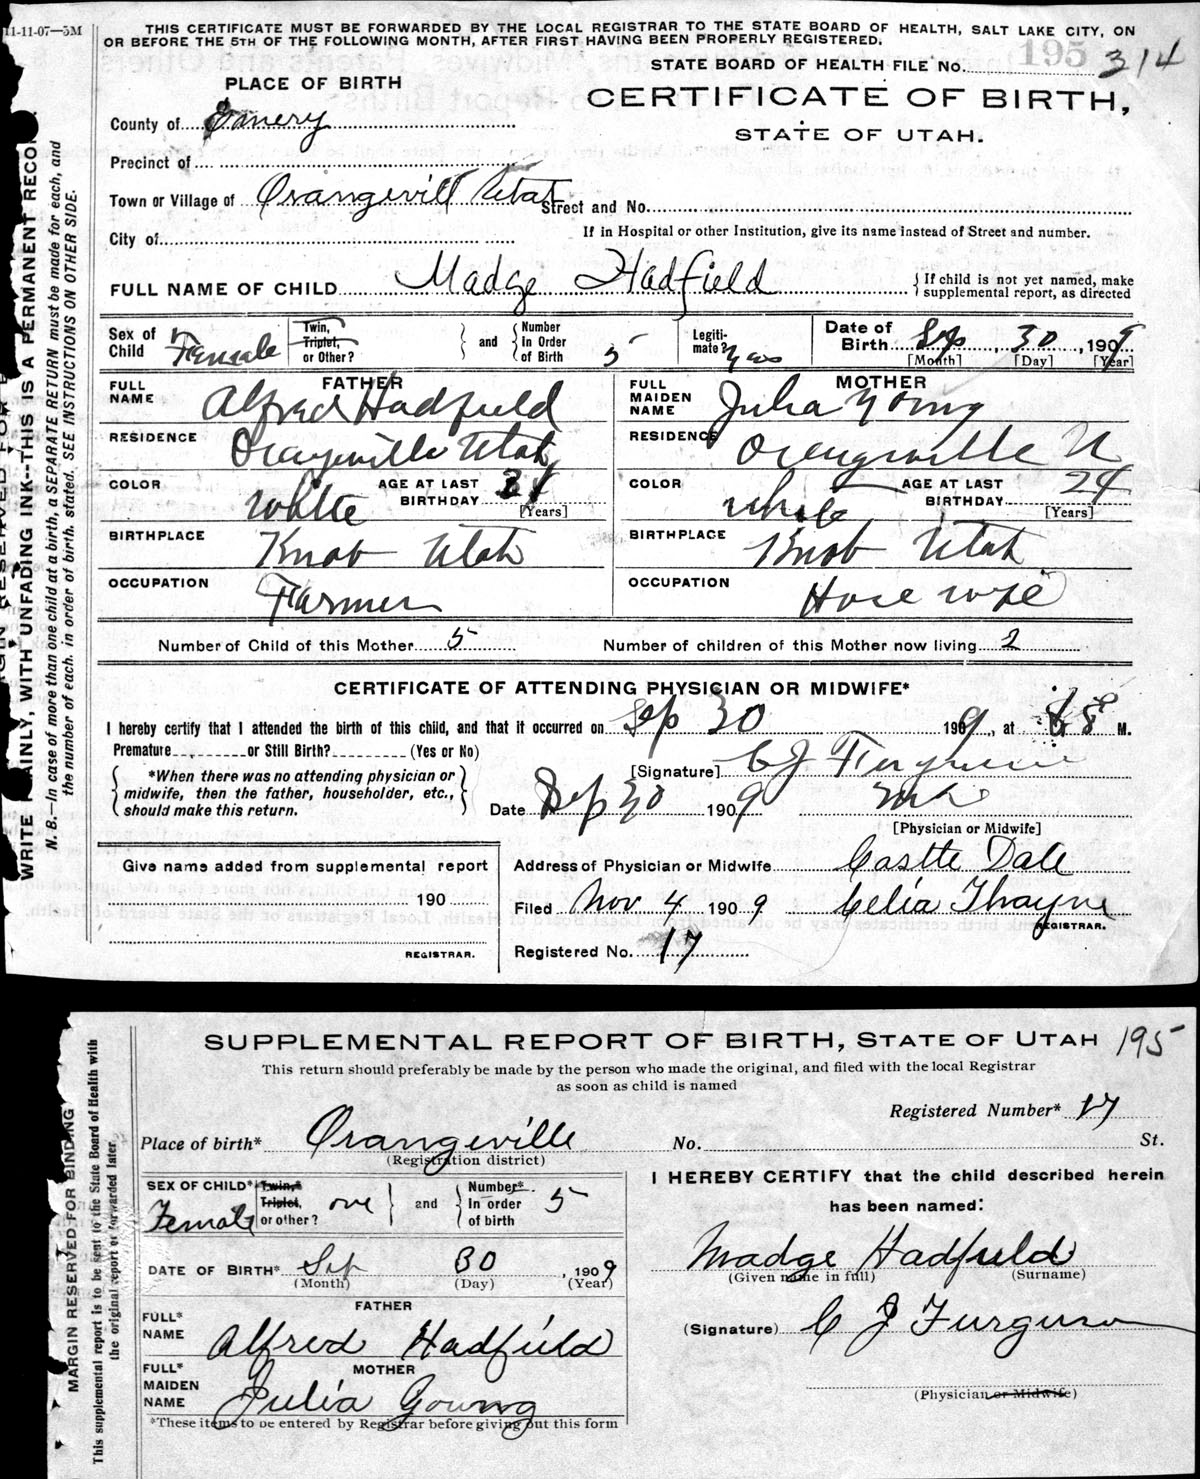 11-11-07—5M
THIS CERTIFICATE MUST BE FORWARDED BY THE LOCAL REGISTRAR TO THE STATE BOARD OF HEALTH, SALT LAKE CITY, ON
OR BEFORE THE 5TH OF THE FOLLOWING MONTH, AFTER FIRST HAVING BEEN PROPERLY REGISTERED.
STATE BOARD OF HEALTH FILE NO. 195 314
PLACE OF BIRTH
CERTIFICATE OF BIRTH,
STATE OF UTAH.
County of Emery
Precinct of
Town or Village of Orangevill Utah Street and No.
City of
If in Hospital or other Institution, give its name instead of Street and number.
FULL NAME OF CHILD Madge Hadfield { If child is not yet named, make supplemental report, as directed
Sex of Child Female Twin, Triplet, or Other? } and { Number In Order of Birth 5 Legiti-mate? yes Date of Birth Sep 30, 1909
[Month] [Day] [Year]
FATHER MOTHER
FULL NAME Alfred Hadfield FULL MAIDEN NAME Julia Young
RESIDENCE Orangeville Utah RESIDENCE Orangeville U
COLOR White AGE AT LAST BIRTHDAY [Years] COLOR White AGE AT LAST BIRTHDAY 24 [Years]
BIRTHPLACE Knob Utah BIRTHPLACE Knob Utah
OCCUPATION Farmer OCCUPATION Hose wife
Number of Child of this Mother 5 Number of children of this Mother now living 2
CERTIFICATE OF ATTENDING PHYSICIAN OR MIDWIFE*
I hereby certify that I attended the birth of this child, and that it occurred on Sep 30 1909, at 8 M.
Premature or Still Birth? (Yes or No)
[Signature] C J Ferguson
{ *When there was no attending physician or midwife, then the father, householder, etc., should make this return. }
Date Sep 30 1909
[Physician or Midwife]
Give name added from supplemental report
190
REGISTRAR.
Address of Physician or Midwife Castle Dale
Filed Nov 4 1909 Celia Thayne
REGISTRAR.
Registered No. 17
WRITE PLAINLY, WITH UNFADING INK--THIS IS A PERMANENT RECORD.
N. B.—In case of more than one child at a birth, a SEPARATE RETURN must be made for each, and
the number of each, in order of birth, stated. SEE INSTRUCTIONS ON OTHER SIDE.
SUPPLEMENTAL REPORT OF BIRTH, STATE OF UTAH 195
This return should preferably be made by the person who made the original, and filed with the local Registrar
as soon as child is named
Registered Number* 17
Place of birth* Orangeville No. St.
(Registration district)
SEX OF CHILD* Female Twin,* Triplet, or other? one } and { Number* In order of birth 5
DATE OF BIRTH* Sep 30, 1909
(Month) (Day) (Year)
FATHER
FULL* NAME Alfred Hadfield
MOTHER
FULL* MAIDEN NAME Julia Young
*These items to be entered by Registrar before giving out this form
I HEREBY CERTIFY that the child described herein
has been named:
Madge Hadfield
(Given name in full) (Surname)
(Signature) C J Ferguson
(Physician or Midwife)
MARGIN RESERVED FOR BINDING
This supplemental report is to be sent to the State Board of Health with
the original report or forwarded later